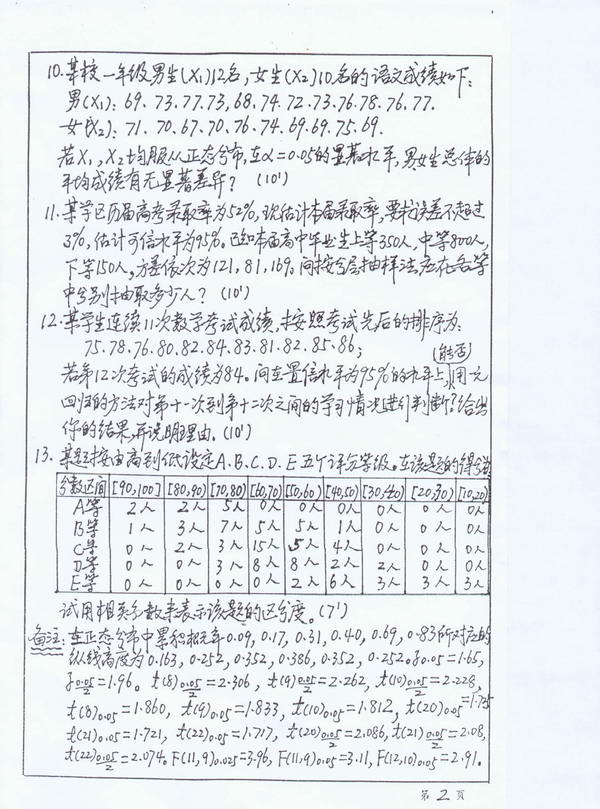 10. 某校一年级男生(X₁)12名,女生(X₂)10名的语文成绩如下:
男(X₁): 69. 73. 77. 73, 68. 74. 72. 73. 76. 78. 76. 77.
女(X₂): 71. 70. 67. 70. 76. 74. 69. 69. 75. 69.
若X₁, X₂均服从正态分布,在α=0.05的显著水平,男女生总体的
平均成绩有无显著差异? (10')
11. 某学区历届高考录取率为52%,现估计本届录取率,要求误差不超过
3%,估计可信水平为95%。已知本届高中毕业生上等350人,中等800人,
下等150人,方差依次为121, 81, 169。问按分层抽样法应在各等
中分别抽取多少人? (10')
12. 某学生连续11次数学考试成绩,按照考试先后的排序为:
75. 78. 76. 80. 82. 84. 83. 81. 82. 85. 86;
(能否)
若第12次考试的成绩为84。问在置信水平为95%的水平上,用一元
回归的方法对第十一次到第十二次之间的学习情况进行判断?给出
你的结果,并说明理由。(10')
13. 某题按由高到低设定A. B. C. D. E五个评分等级。在该题的得分
分数区间 [90,100] [80,90) [70,80) [60,70) [50,60) [40,50) [30,40) [20,30) [10,20)
A等 2人 2人 5人 0人 0人 0人 0人 0人 0人
B等 1人 3人 7人 5人 5人 1人 0人 0人 0人
C等 0人 2人 3人 15人 5人 4人 0人 0人 0人
D等 0人 0人 3人 8人 8人 2人 2人 0人 0人
E等 0人 0人 0人 0人 2人 6人 3人 3人 3人
试用相关系数来表示该题的区分度。(7')
备注: 在正态分布中累积概率0.09, 0.17, 0.31, 0.40, 0.69, 0.83所对应的
纵线高度为0.163, 0.252, 0.352, 0.386, 0.352, 0.252。z0.05=1.65,
z0.05/2=1.96。 t(8)0.05/2=2.306, t(9)0.05/2=2.262, t(10)0.05/2=2.228,
t(8)0.05=1.860, t(9)0.05=1.833, t(10)0.05=1.812, t(20)0.05=1.725
t(21)0.05=1.721, t(22)0.05=1.717, t(20)0.05/2=2.086, t(21)0.05/2=2.08,
t(22)0.05/2=2.074。F(11,9)0.025=3.96, F(11,9)0.05=3.11, F(12,10)0.05=2.91。
第 2 页